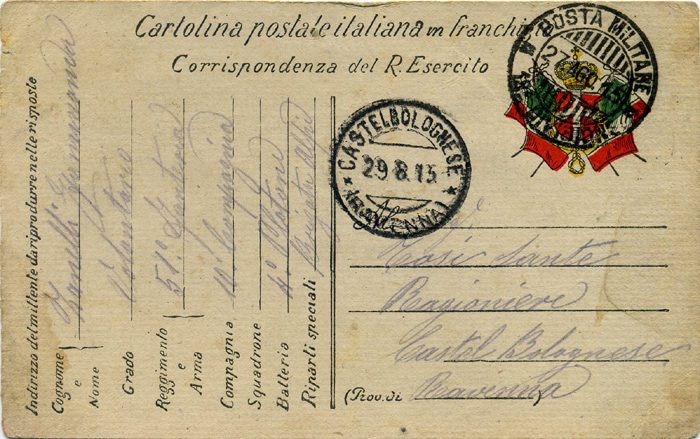 Cartolina postale italiana in franchigia
Corrispondenza del R. Esercito
POSTA MILITARE
CASTELBOLOGNESE
29.8.15
(RAVENNA)
Indirizzo del mittente da riprodurre nelle risposte
Cognome e Nome
Zanelli
Grado
Volontario
Reggimento e Arma
51º Fanteria
Compagnia
10ª Compagnia
Squadrone
Batteria
4º Plotone
Riparti speciali
Tosi Sante
Ragioniere
Castel Bolognese
(Prov. di Ravenna